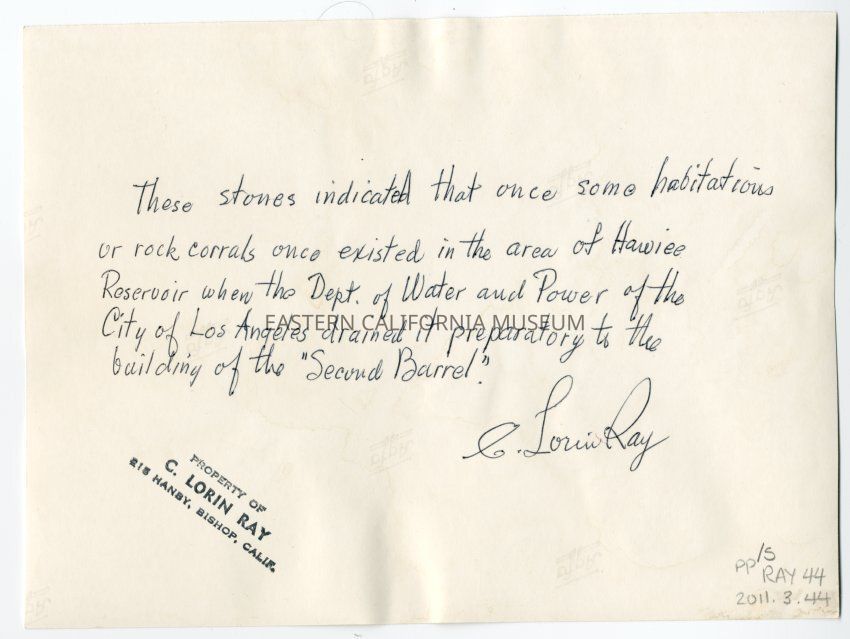 These stones indicated that once some habitations
or rock corrals once existed in the area of Hawiee
Reservoir when the Dept. of Water and Power of the
City of Los Angeles drained it preparatory to the
EASTERN CALIFORNIA MUSEUM
building of the "Second Barrel".
C. Lorin Ray
PROPERTY OF
C. LORIN RAY
215 HANBY, BISHOP, CALIF.
pp/s
RAY 44
2011.3.44